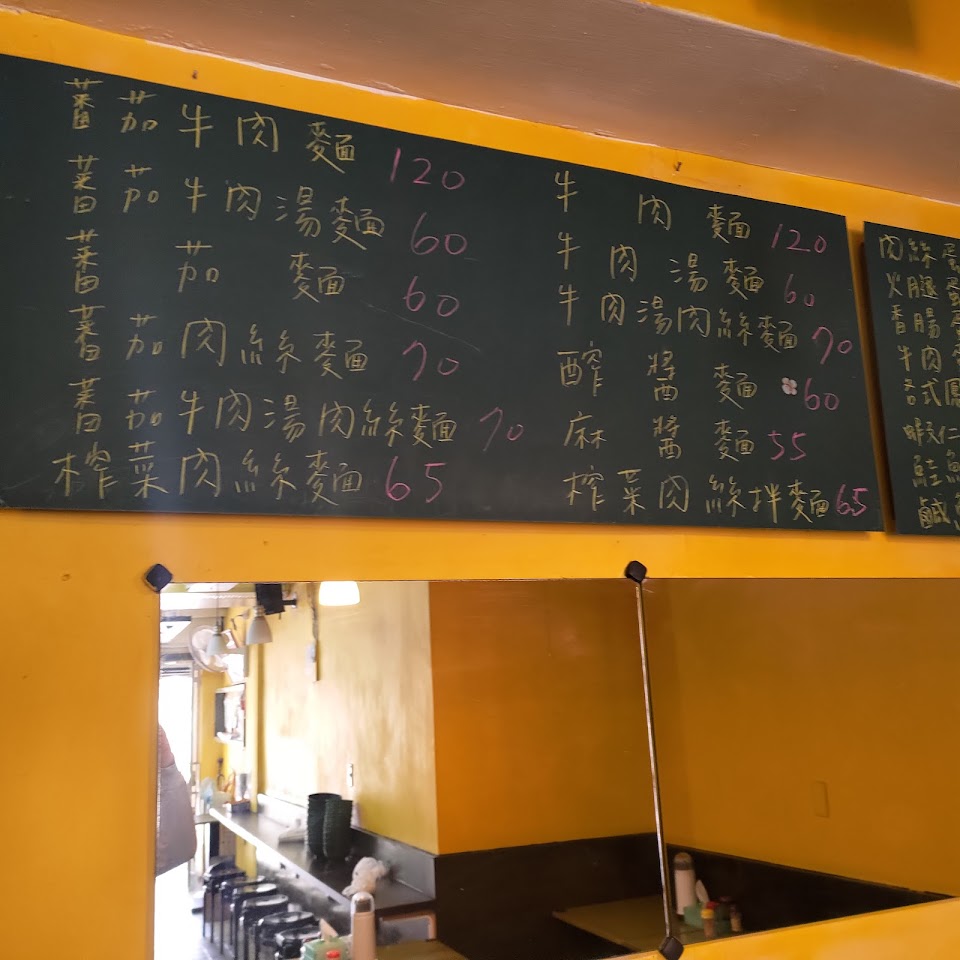 蕃茄牛肉麵 120
蕃茄牛肉湯麵 60
蕃茄麵 60
蕃茄肉絲麵 70
蕃茄牛肉湯肉絲麵 70
榨菜肉絲麵 65
牛肉麵 120
牛肉湯麵 60
牛肉湯肉絲麵 70
醡醬麵 60
麻醬麵 55
榨菜肉絲拌麵 65
肉絲蛋
火腿蛋
香腸
牛肉
各式
蝦仁
鮭
鹹